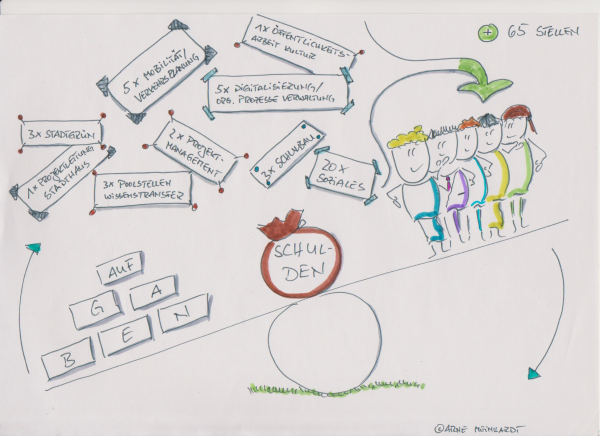 1x ÖFFENTLICHKEITS-
ARBEIT KULTUR
65 STELLEN
5x MOBILITÄT/
VERKEHRSPLANUNG
5x DIGITALISIERUNG/
ORG. PROZESSE VERWALTUNG
3x STADTGRÜN
2x PROJEKT-
MANAGEMENT
3x SCHULBAU
1x PROJEKTLEITUNG
STADTHAUS
3x POOLSTELLEN
WISSENSTRANSFER
20x
SOZIALES
SCHUL-
DEN
AUF
G A
B E N
©ARNE MEINHARDT